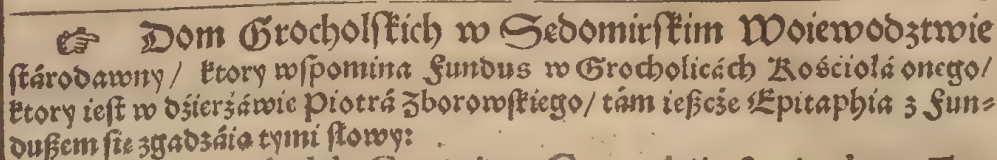 ☞ Dom Grocholſkich w Sedomirſkim Woiewodztwie
ſtárodawny / ktory wſpomina Fundus w Grocholicách Kośćiołá onego /
ktory ieſt w dźierżáwie Piotrá Zborowſkiego / tám ieſzcże Epitaphia z Fun⸗
duſzem ſie zgadzáią tymi ſłowy: